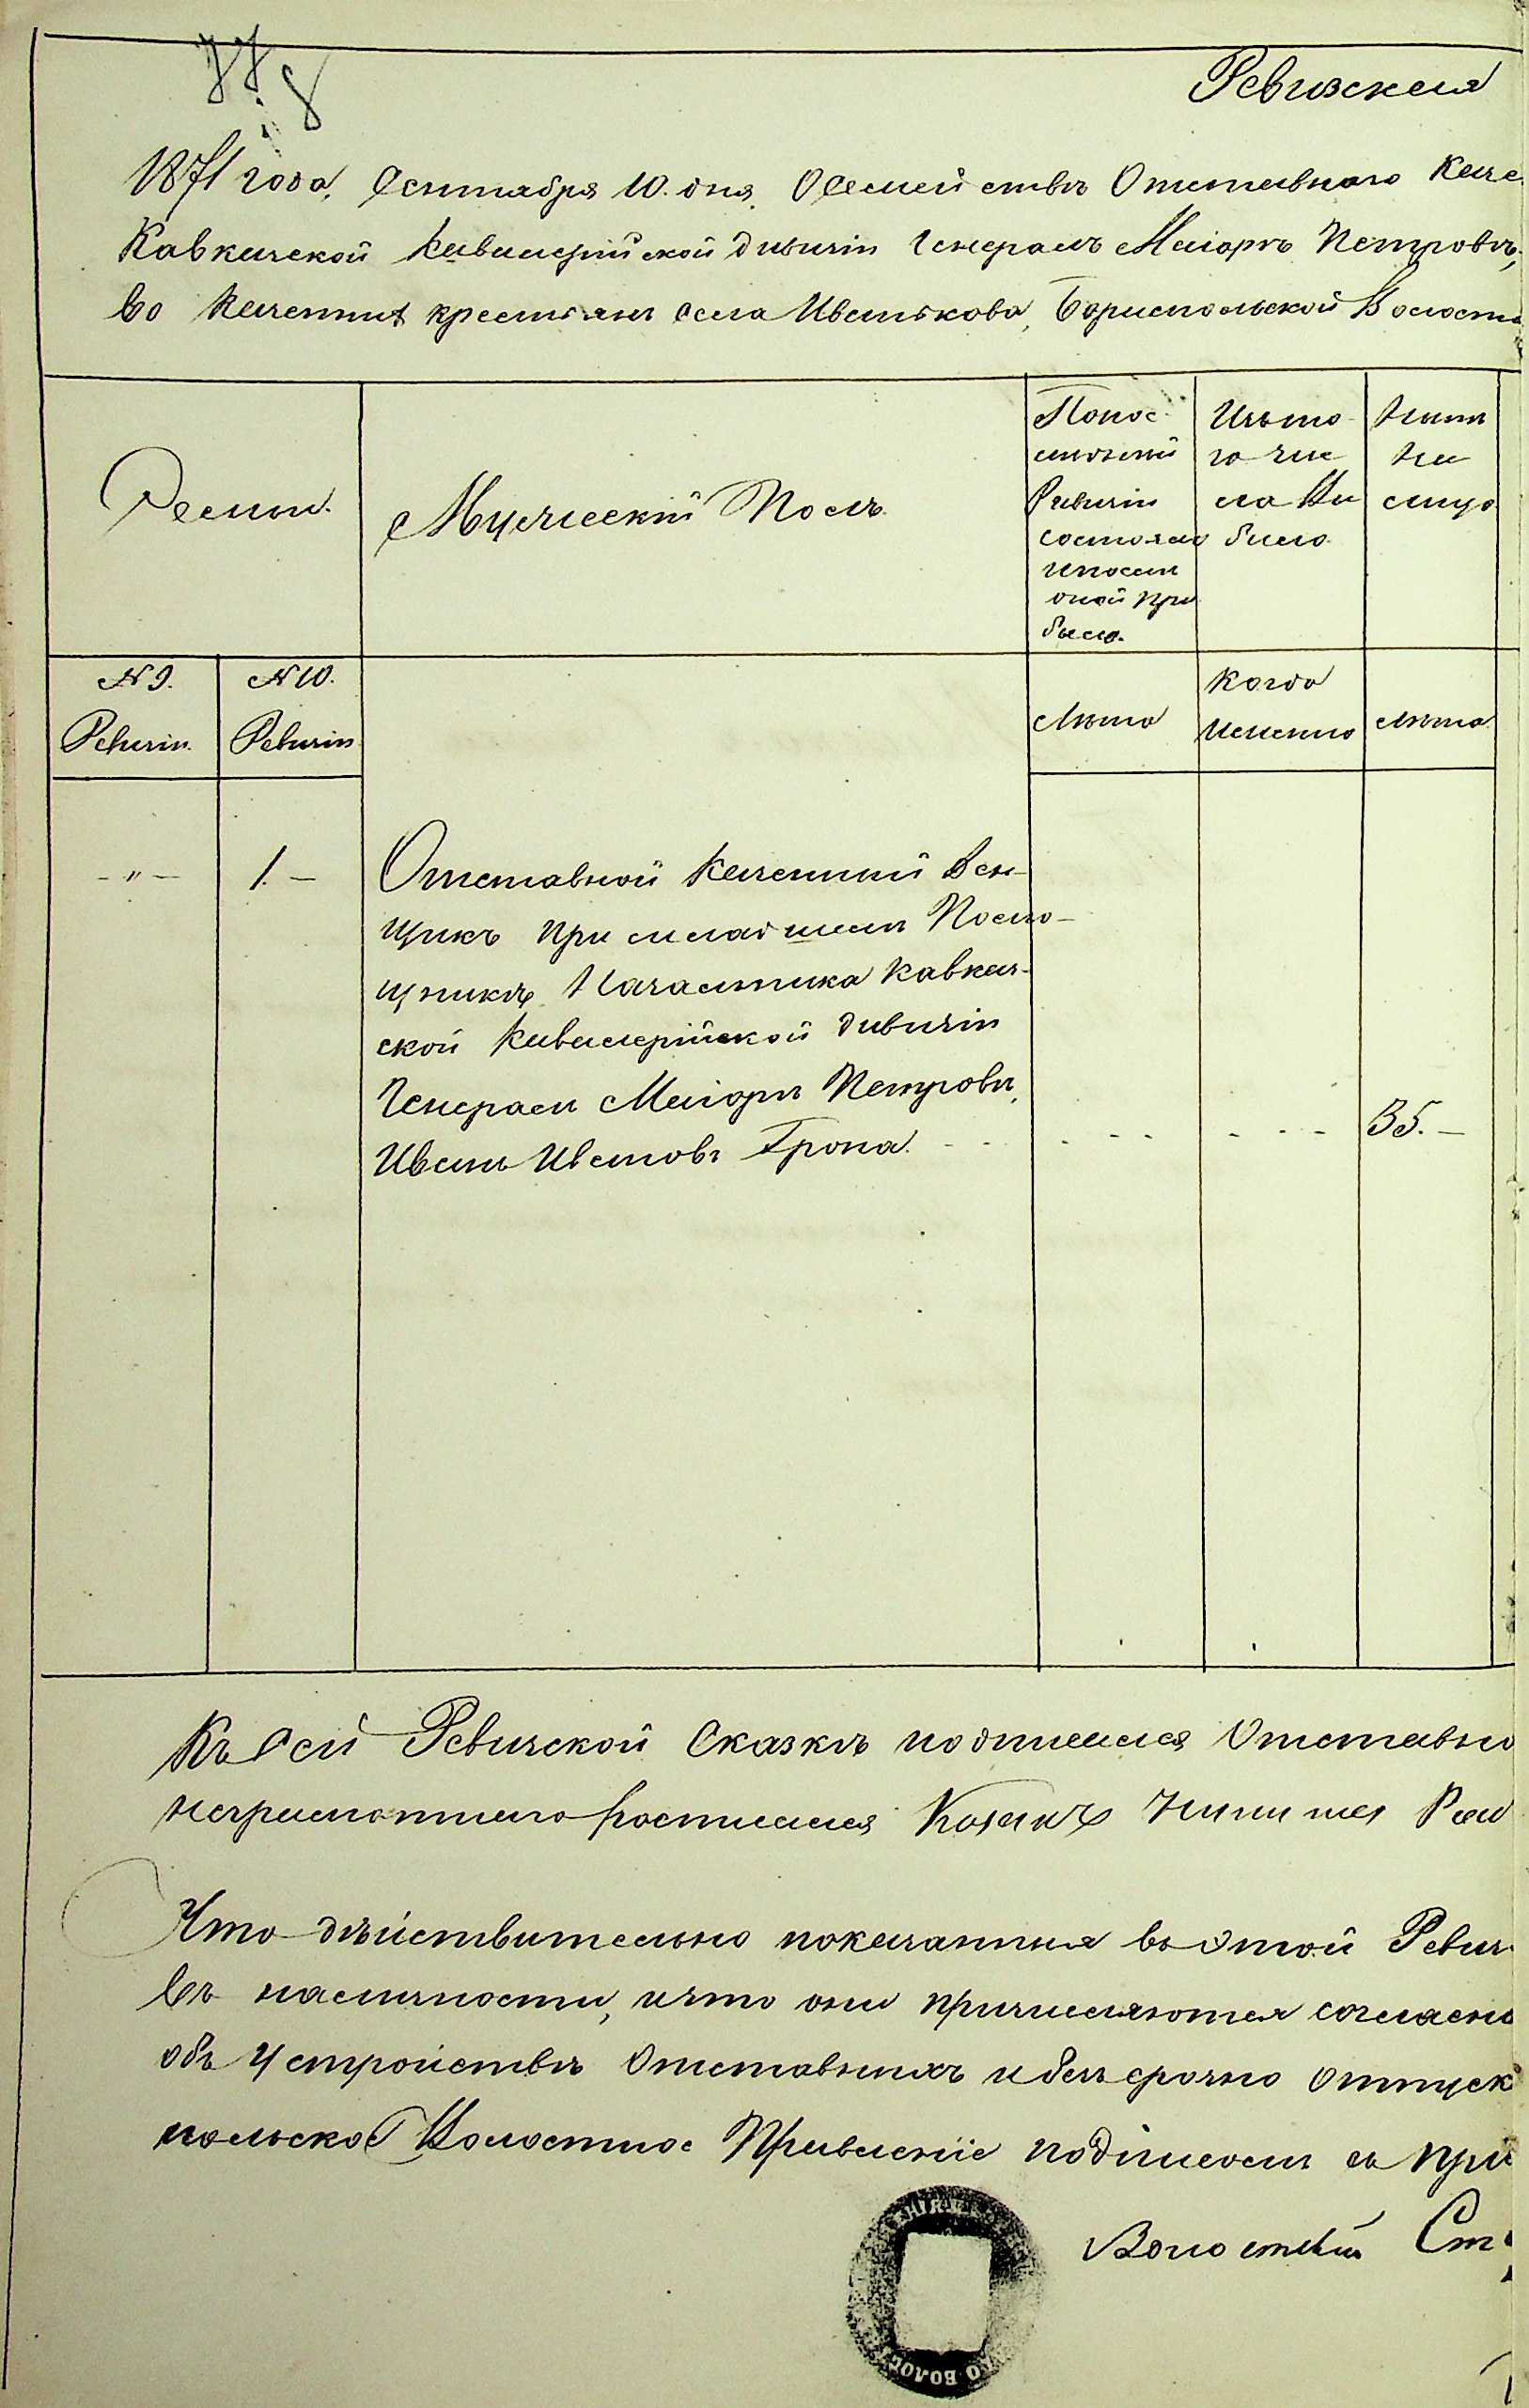 Ревизская
1871 года, Сентября 10. дня, О Семействѣ Отставнаго Казе
Кавказской Кавалерійской дивизіи Генералъ Маіорѣ Петровѣ,
во казенныхъ крестьянъ села Иванкова, Бориспольской Волости
Семьи.
Мужескій Полъ.
Попос
лѣдней
Ревизіи
состояло
и после
оной при
было.
Изъто
го чис
ла Вы
было
Нынѣ
на
лицо
N 9.
Ревизіи.
N 10.
Ревизіи
Лѣта
Когда
именно
Лѣта
- " -
1. -
Отставной Казенный Ден-
щикъ при младшемъ Помо-
щникѣ Начальника Кавказ-
ской Кавалерійской дивизіи
Генералъ Маіорѣ Петровѣ,
Иванъ Ивановъ Грона.
35. -
Къ Сей Ревизской Сказкѣ подписался Отставно
неграмотнаго росписался Козакъ
Что действительно показанныя въ этой Ревиз
въ наличности, и что они причисляются согласно
объ Устройствѣ Отставныхъ и безсрочно отпуск
польское Волостное Правленіе подписомъ съ при
Волостный Ст